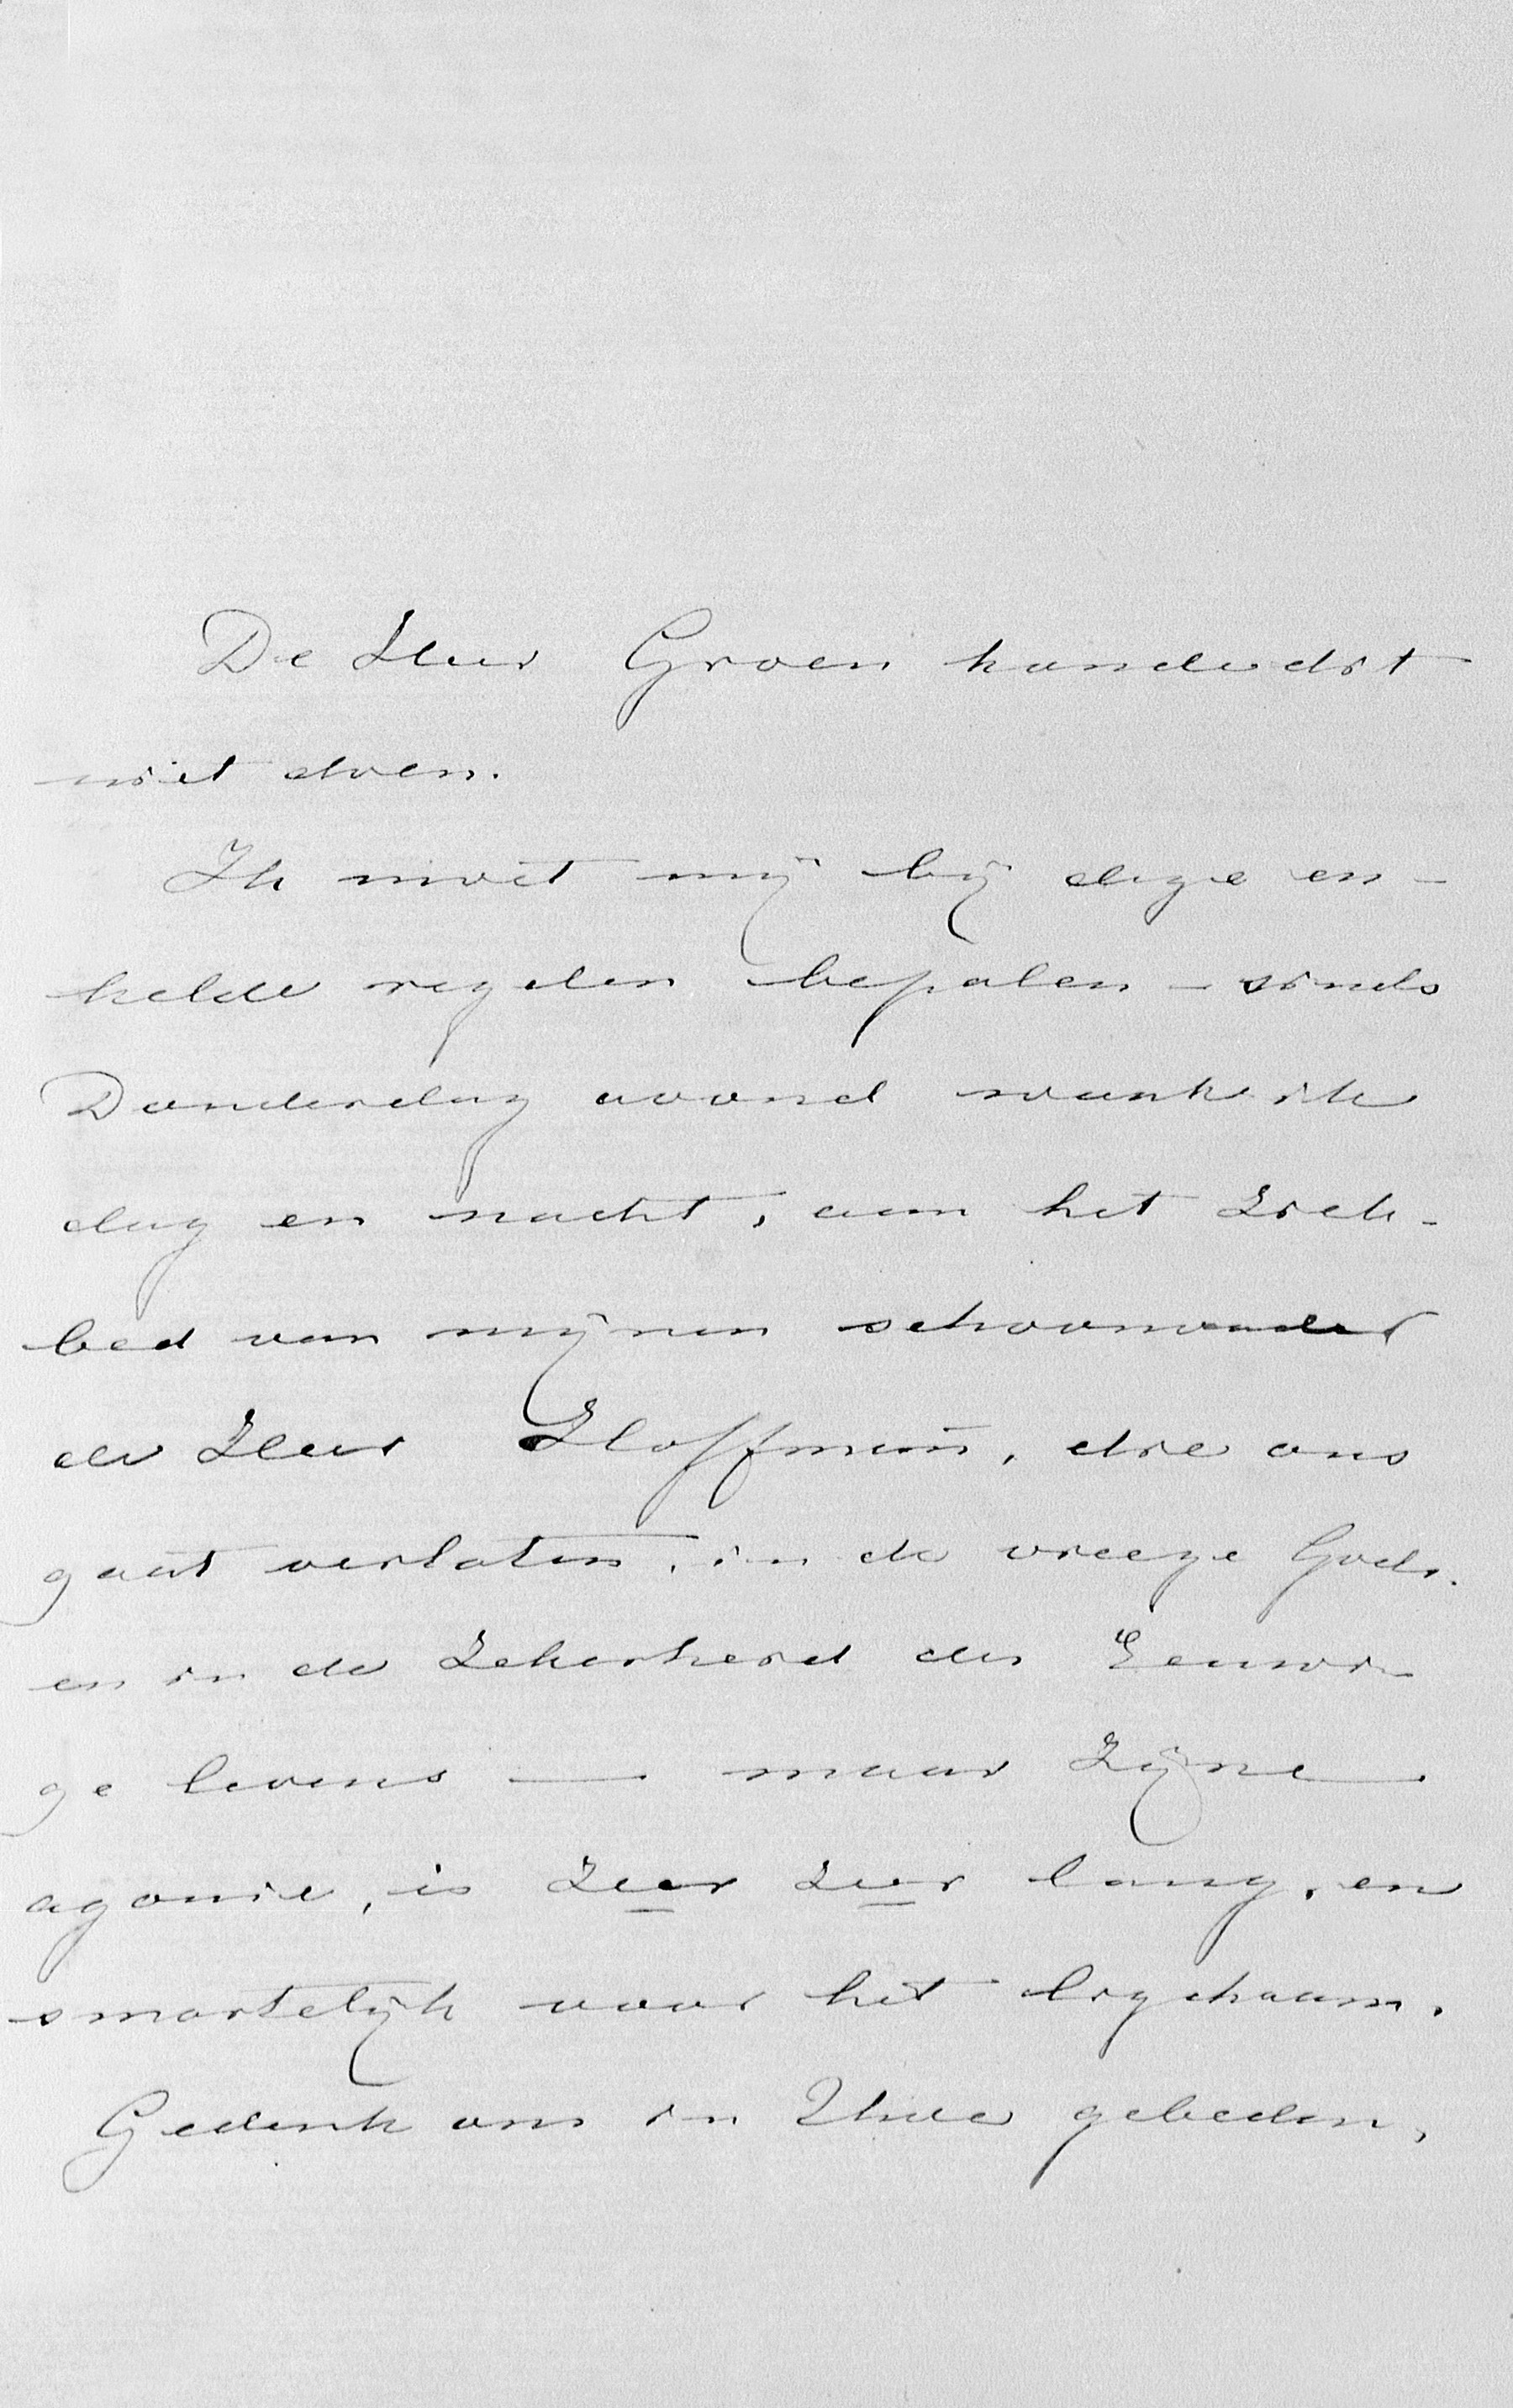 De Heer Groen kan dit
niet doen.
Ik moet mij bij deze en-
kelde regelen bepalen - sinds
Donderdag avond waak ik
dag en nacht, aan het ziek-
bed van mijnen schoonvader
de Heer Hoffman, die ons
gaat verlaten, in de vreeze Gods.
en in de zekerheid des Eeuwi-
ge levens — maar zijne
agonie, is zeer zeer lang, en
smartelijk voor het ligchaam.
Gedenk ons in Uwe gebeden,